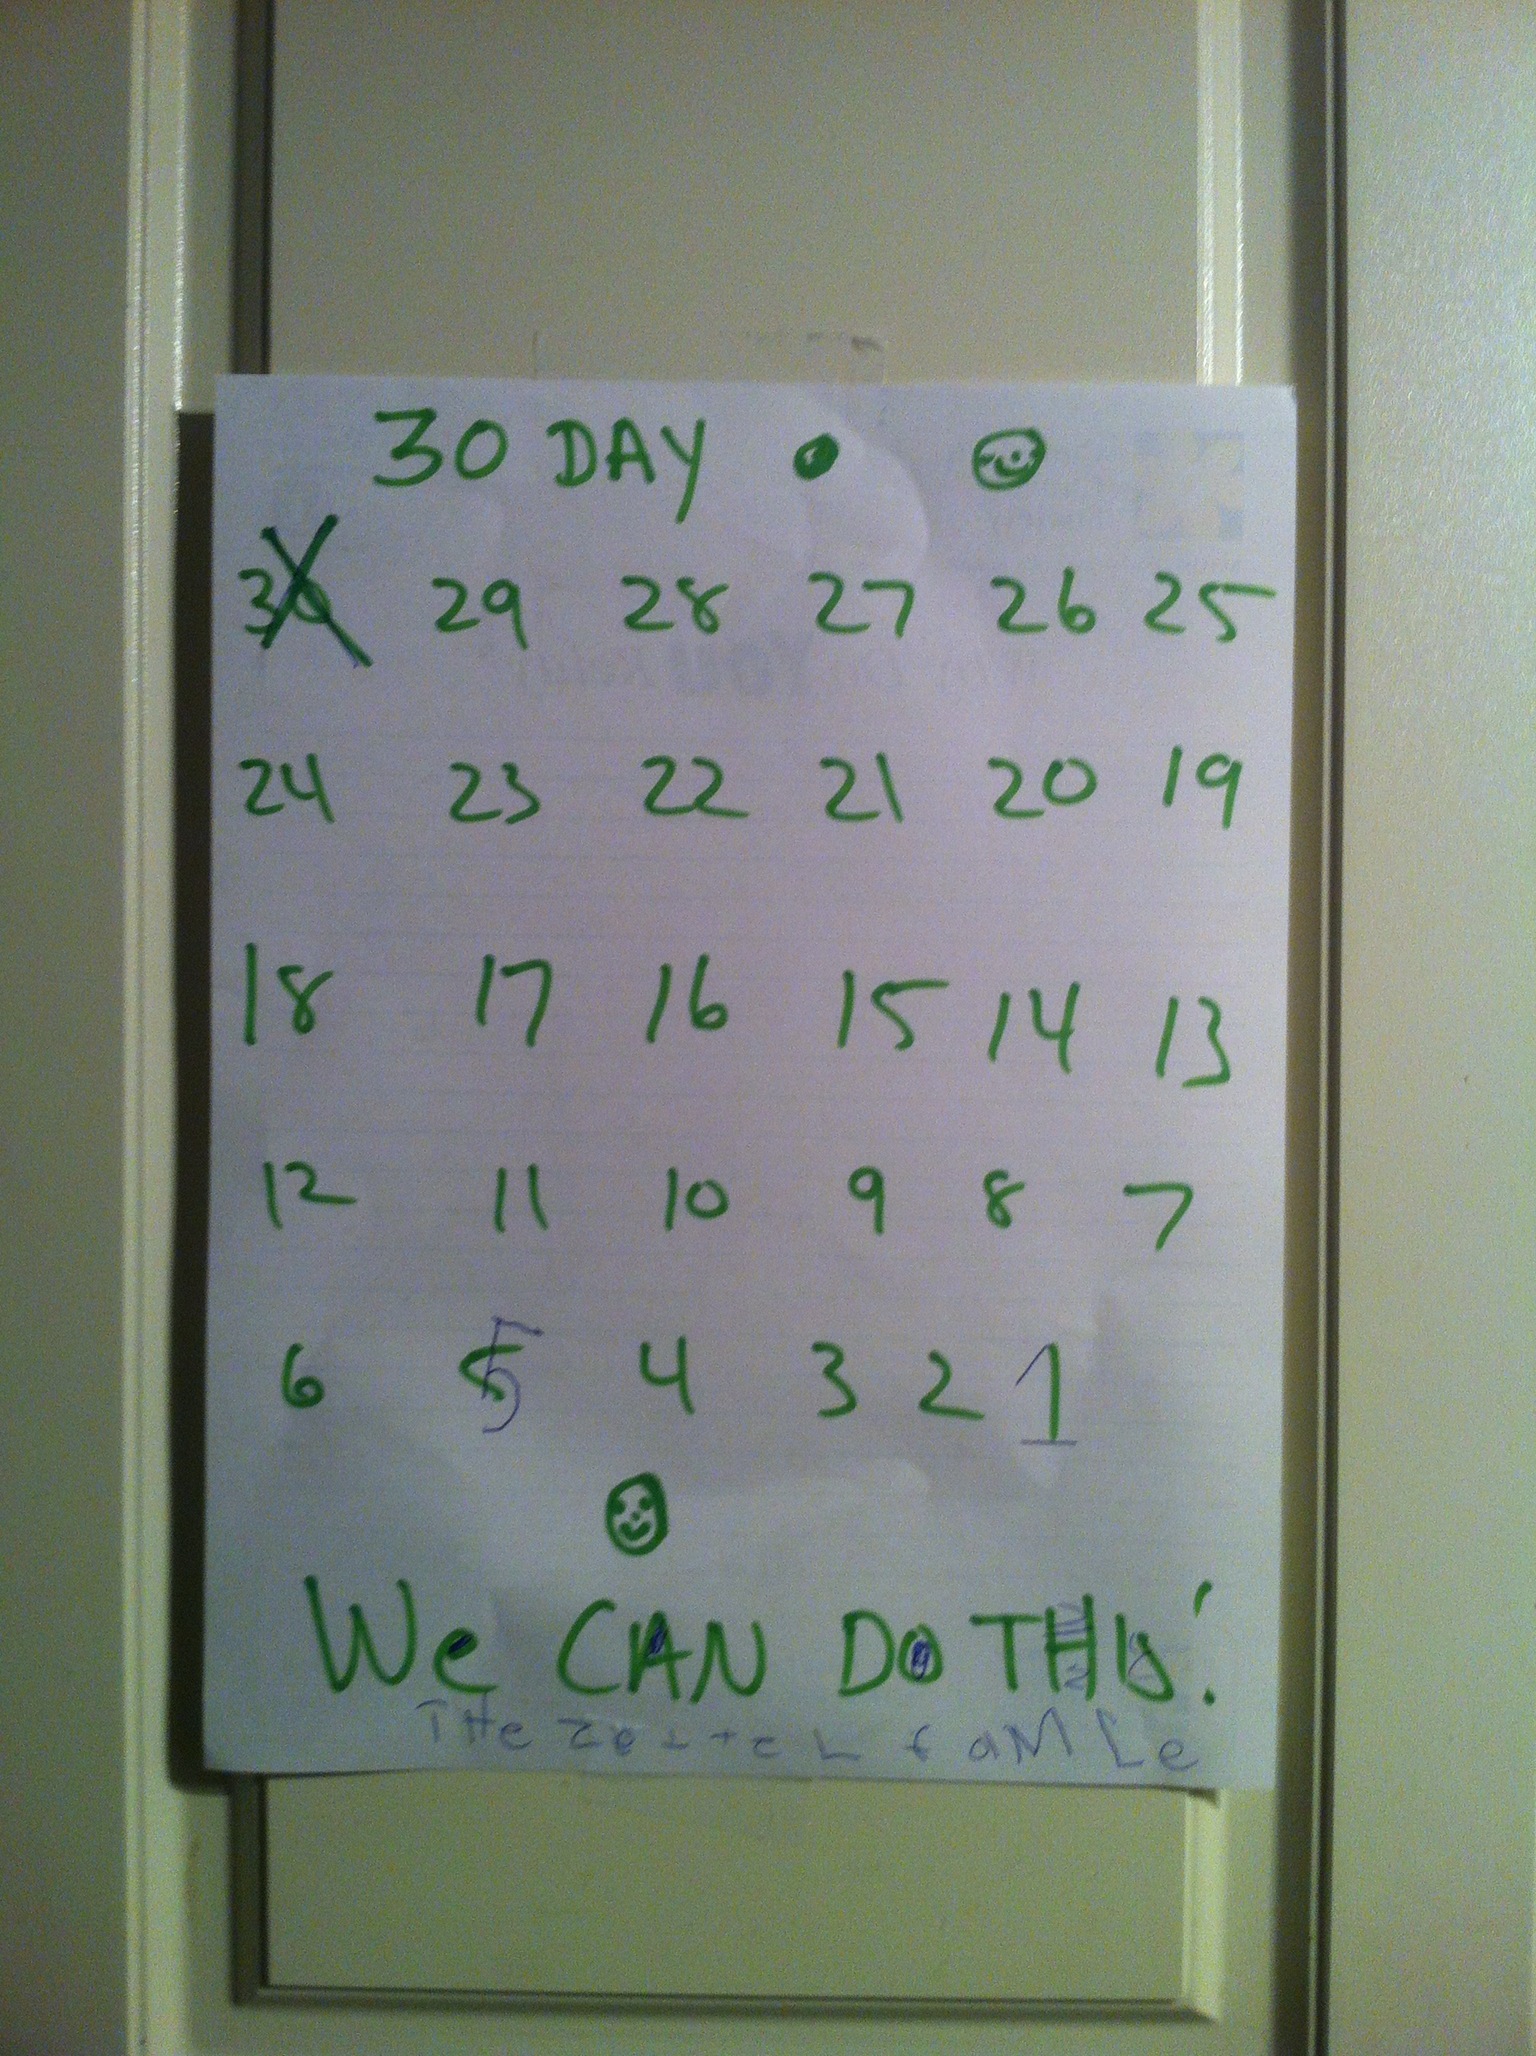 30 DAY
30 29 28 27 26 25
24 23 22 21 20 19
18 17 16 15 14 13
12 11 10 9 8 7
6 5 4 3 2 1
We CAN DO THIS!
THe